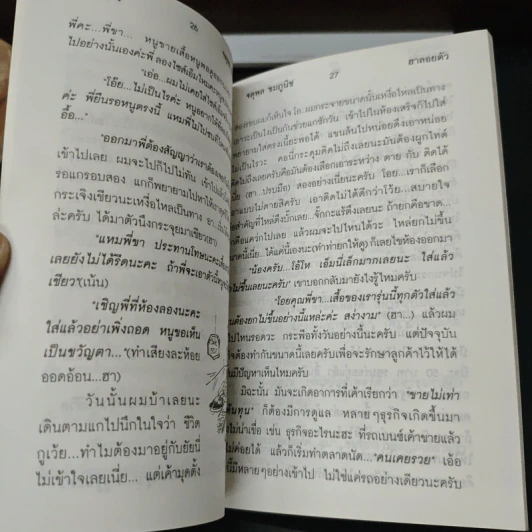 26
พี่คะ...พี่ขา... หนูขายเสื้อหนู
ไปอย่างนั้นเองค่ะพี่ ลองไซส์เอ็มไหมคะ
"เอ่อ...ผมไม่เคยใส่ไซส์เอ็ม
"โอ๊ย...ไม่เป็นไรค่ะ หนูอยากให้
ค่ะ พี่ยืนรอหนูตรงนี้ แหมพี่ไม่
อื้อ..."
"ออกมาพี่ต้องสัญญาว่าเรา
เข้าไปเลย ผมจะไปก็ไปไม่ทัน เข้าไปเสร็จ
รอแกรอบสอง แกก็พยายามปาหา
กระเจิงเชียวนะเหงื่อไหลเป็นทาง
ล่ะครับ ได้มาตัวนึงกระจุยมาเชียว(ฮา)
"แหมพี่ขา ประทานโทษนะคะ
เลยยังไม่ได้รีดนะคะ ถ้าพี่จะเอาตัวนี้
เชียวๆ(เน้น)
"เชิญพี่ที่ห้องลองนะคะ
ใส่แล้วอย่าเพิ่งถอด หนูขอเห็น
เป็นขวัญตา..."(ทำเสียงละห้อย
ออดอ้อน...ฮา)
วันนั้นผมบ้าเลยนะ
เดินตามแกไปนึกในใจว่า ชีวิต
กูเว้ย...ทำไมต้องมาอยู่กับยัยนี่
ไม่เข้าใจเลยเนี่ย... แต่เค้ามุดตั้ง
จตุพล ชมภูนิช
27
ฮาลอยตัว
ผมกระจายขนาดนั้นเหงื่อไหลเป็นทาง
เป็นกันช่วยแกซักวัน เข้าไปในห้องเสร็จก็ไปใส่
ตรงเนี้ยะพอได้ แขนสั้นไปหน่อยดึงเอาหน่อย
ไม่เป็นไรวะ คอนี่กระดุมติดไม่ถึงเลยนะมันต้องผูกไทด์
ไม่ถึงเลยครับคือมันต้องเลือกเอาระหว่าง ตาย กับ ติดได้
(ฮา ..ปรบมือ) สองอย่างเนี่ยนะครับ โดย...เราก็เลือก
แบบไม่ตายสิครับ เอาติดไม่ได้ดีกว่าโว้ย...สบายใจ
สำคัญที่ไหล่ตึงบั้กเลย...จั๊กกะแร้ตึงเลยนะ ถ้ายกคือขาด...
คือแควกไปเลย แล้วผมจะไปไหนได้วะ ไหล่ยกไม่ขึ้น
ขนาดนี้เนี่ย..ได้แค่นี้เองน่ะ(ทำท่ายกให้ดู) ก็เลยไขห้องออกมา
"น้องครับ...โอ้โห เอ็มนี่เล็กมากเลยนะ ใส่แล้ว
ไม่ขึ้นเลยนะครับ" เขาบอกกลับมายังไงรู้ไหมครับ
"โอยคุณพี่ขา...เสื้อของเรารุ่นนี้ทุกตัวใส่แล้ว
ต้องยกไม่ขึ้นอย่างนี้แหล่ะค่ะ สง่างาม" (ฮา...) แล้วผม
ไปไหนรอดวะ กระพือทั้งวันอย่างนี้นะครับ แต่ปัจจุบัน
ต้องทำกันขนาดนี้เลยครับเพื่อจะรักษาลูกค้าไว้ให้ได้
มีปัญหาเห็นไหมครับ
มิฉะนั้น มันจะเกิดอาการที่เค้าเรียกว่า "ขายไม่เท่า
ต้นทุน" ก็ต้องมีการดูแล หลายๆธุรกิจเกิดขึ้นมา
ไม่น่าเชื่อ เช่น ธุรกิจอะไรนะฮะ ที่รถเบนซ์เค้าขายแล้ว
ไม่ค่อยได้ แล้วก็เริ่มทำตลาดนัด..."คนเคยรวย" เอ้อ
นี้มีหลายๆอย่างเข้าไป ไม่ใช่แค่รถอย่างเดียวนะครับ